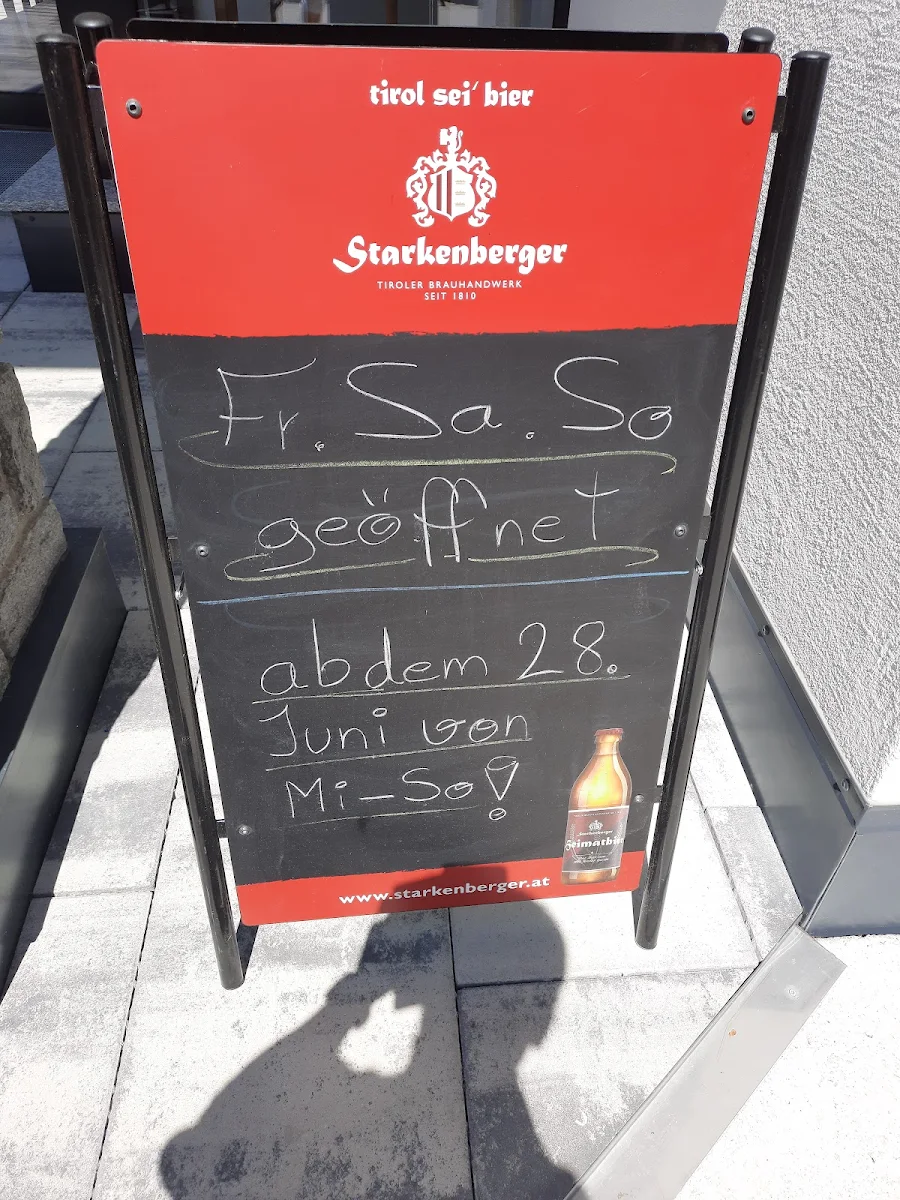 tirol sei' bier
Starkenberger
TIROLER BRAUHANDWERK
SEIT 1810
Fr. Sa. So
geöffnet
ab dem 28.
Juni von
Mi-So!
Starkenberger
Heimatbier
www.starkenberger.at